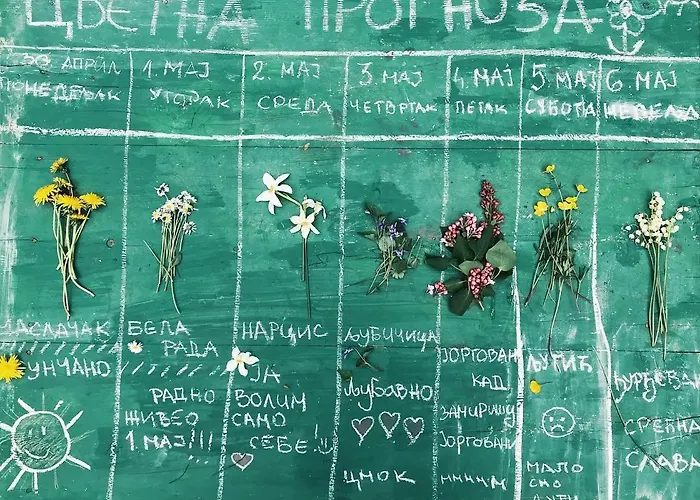 ЦВЕТНА ПРОГНОЗА
30 АПРИЛ
ПОНЕДЕЉАК
1. МАЈ
УТОРАК
2. МАЈ
СРЕДА
3. МАЈ
ЧЕТВРТАК
4. МАЈ
ПЕТАК
5. МАЈ
СУБОТА
6. МАЈ
НЕДЕЉА
МАСЛАЧАК
СУНЧАНО
БЕЛА
РАДА
РАДНО
ЖИВЕО
1. МАЈ!!!
НАРЦИС
ЈА
ВОЛИМ
САМО
СЕБЕ!!
ЉУБИЧИЦА
ЉУБАВНО
ЦМОК
ЈОРГОВАН
КАД
ЗАМИРИШУ
ЈОРГОВАНИ
МММММ
ЉУТИЋ
МАЛО
СМО
ЉУТИ
ЂУРЂЕВАК
СРЕЋНА
СЛАВА